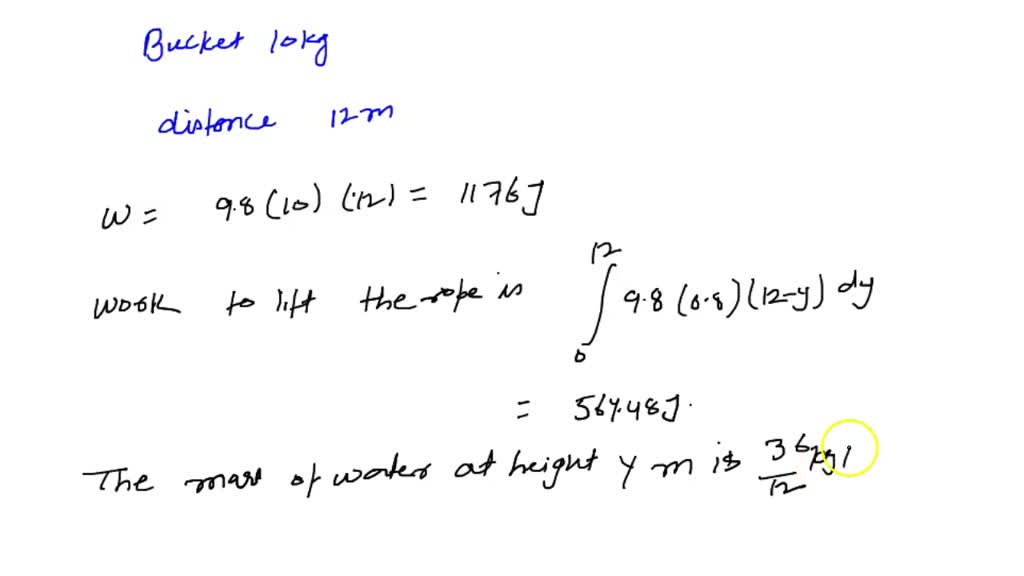 Bucket 10kg
distance 12m
W = 9.8 (10) (12) = 1176J
work to lift the rope is ∫₀¹² 9.8 (0.8) (12-y) dy
= 564.48J.
The mass of water at height y m is 36/12 kg/